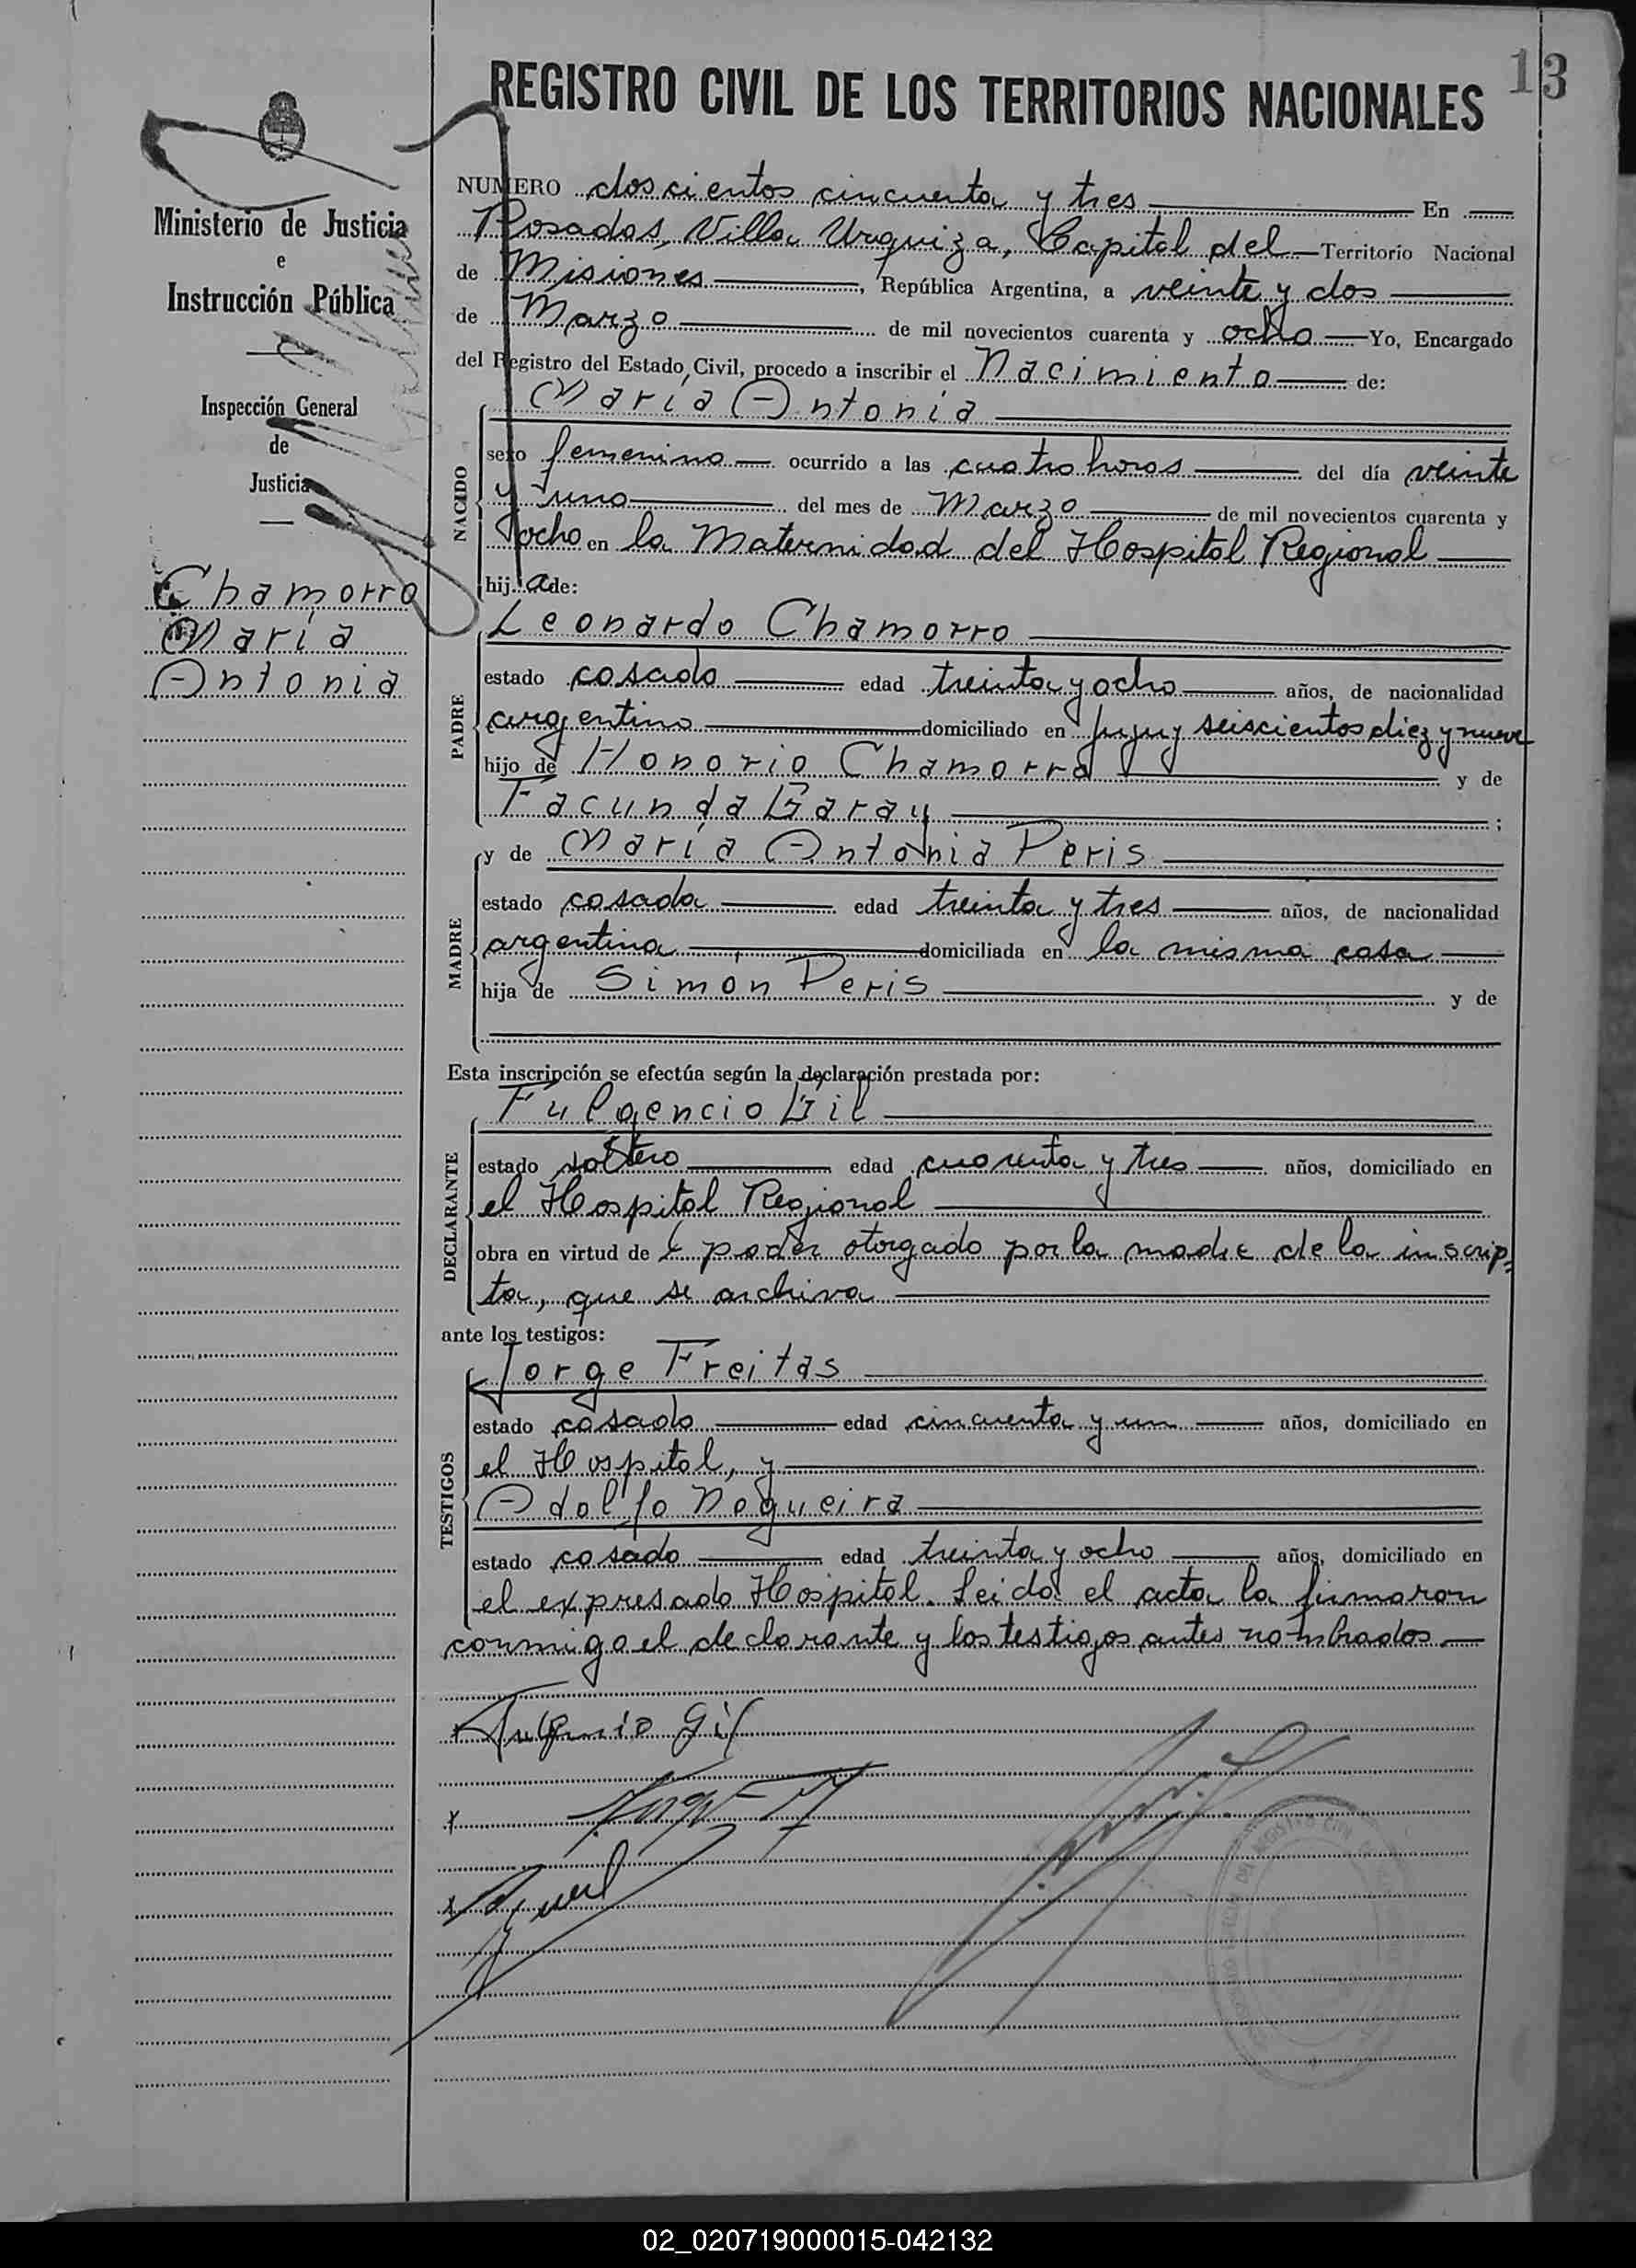 13
REGISTRO CIVIL DE LOS TERRITORIOS NACIONALES
Ministerio de Justicia
e
Instrucción Pública
Inspección General
de
Justicia
Chamorro
María
Antonia
NUMERO doscientos cincuenta y tres En
Posadas, Villa Urquiza, Capital del Territorio Nacional
de Misiones, República Argentina, a veinte y dos
de Marzo de mil novecientos cuarenta y ocho Yo, Encargado
del Registro del Estado Civil, procedo a inscribir el Nacimiento de:
María Antonia
NACIDO
sexo femenino ocurrido a las cuatro horas del día veinte
y uno del mes de Marzo de mil novecientos cuarenta y
ocho en la Maternidad del Hospital Regional
hij a de:
Leonardo Chamorro
PADRE
estado casado edad treinta y ocho años, de nacionalidad
argentino domiciliado en Jujuy seiscientos diez y nueve
hijo de Honorio Chamorro y de
Facunda Garay ;
y de María Antonia Peris
MADRE
estado casada edad treinta y tres años, de nacionalidad
argentina domiciliada en la misma casa
hija de Simón Peris y de
Esta inscripción se efectúa según la declaración prestada por:
Fulgencio Gil
DECLARANTE
estado soltero edad cuarenta y tres años, domiciliado en
el Hospital Regional
obra en virtud de poder otorgado por la madre de la inscrip=
ta, que se archiva
ante los testigos:
Jorge Freitas
TESTIGOS
estado casado edad cincuenta y un años, domiciliado en
el Hospital, y
Adolfo Nogueira
estado casado edad treinta y ocho años, domiciliado en
el expresado Hospital. Leida el acta la firmaron
conmigo el declarante y los testigos antes nombrados
Fulgencio Gil
02_020719000015-042132